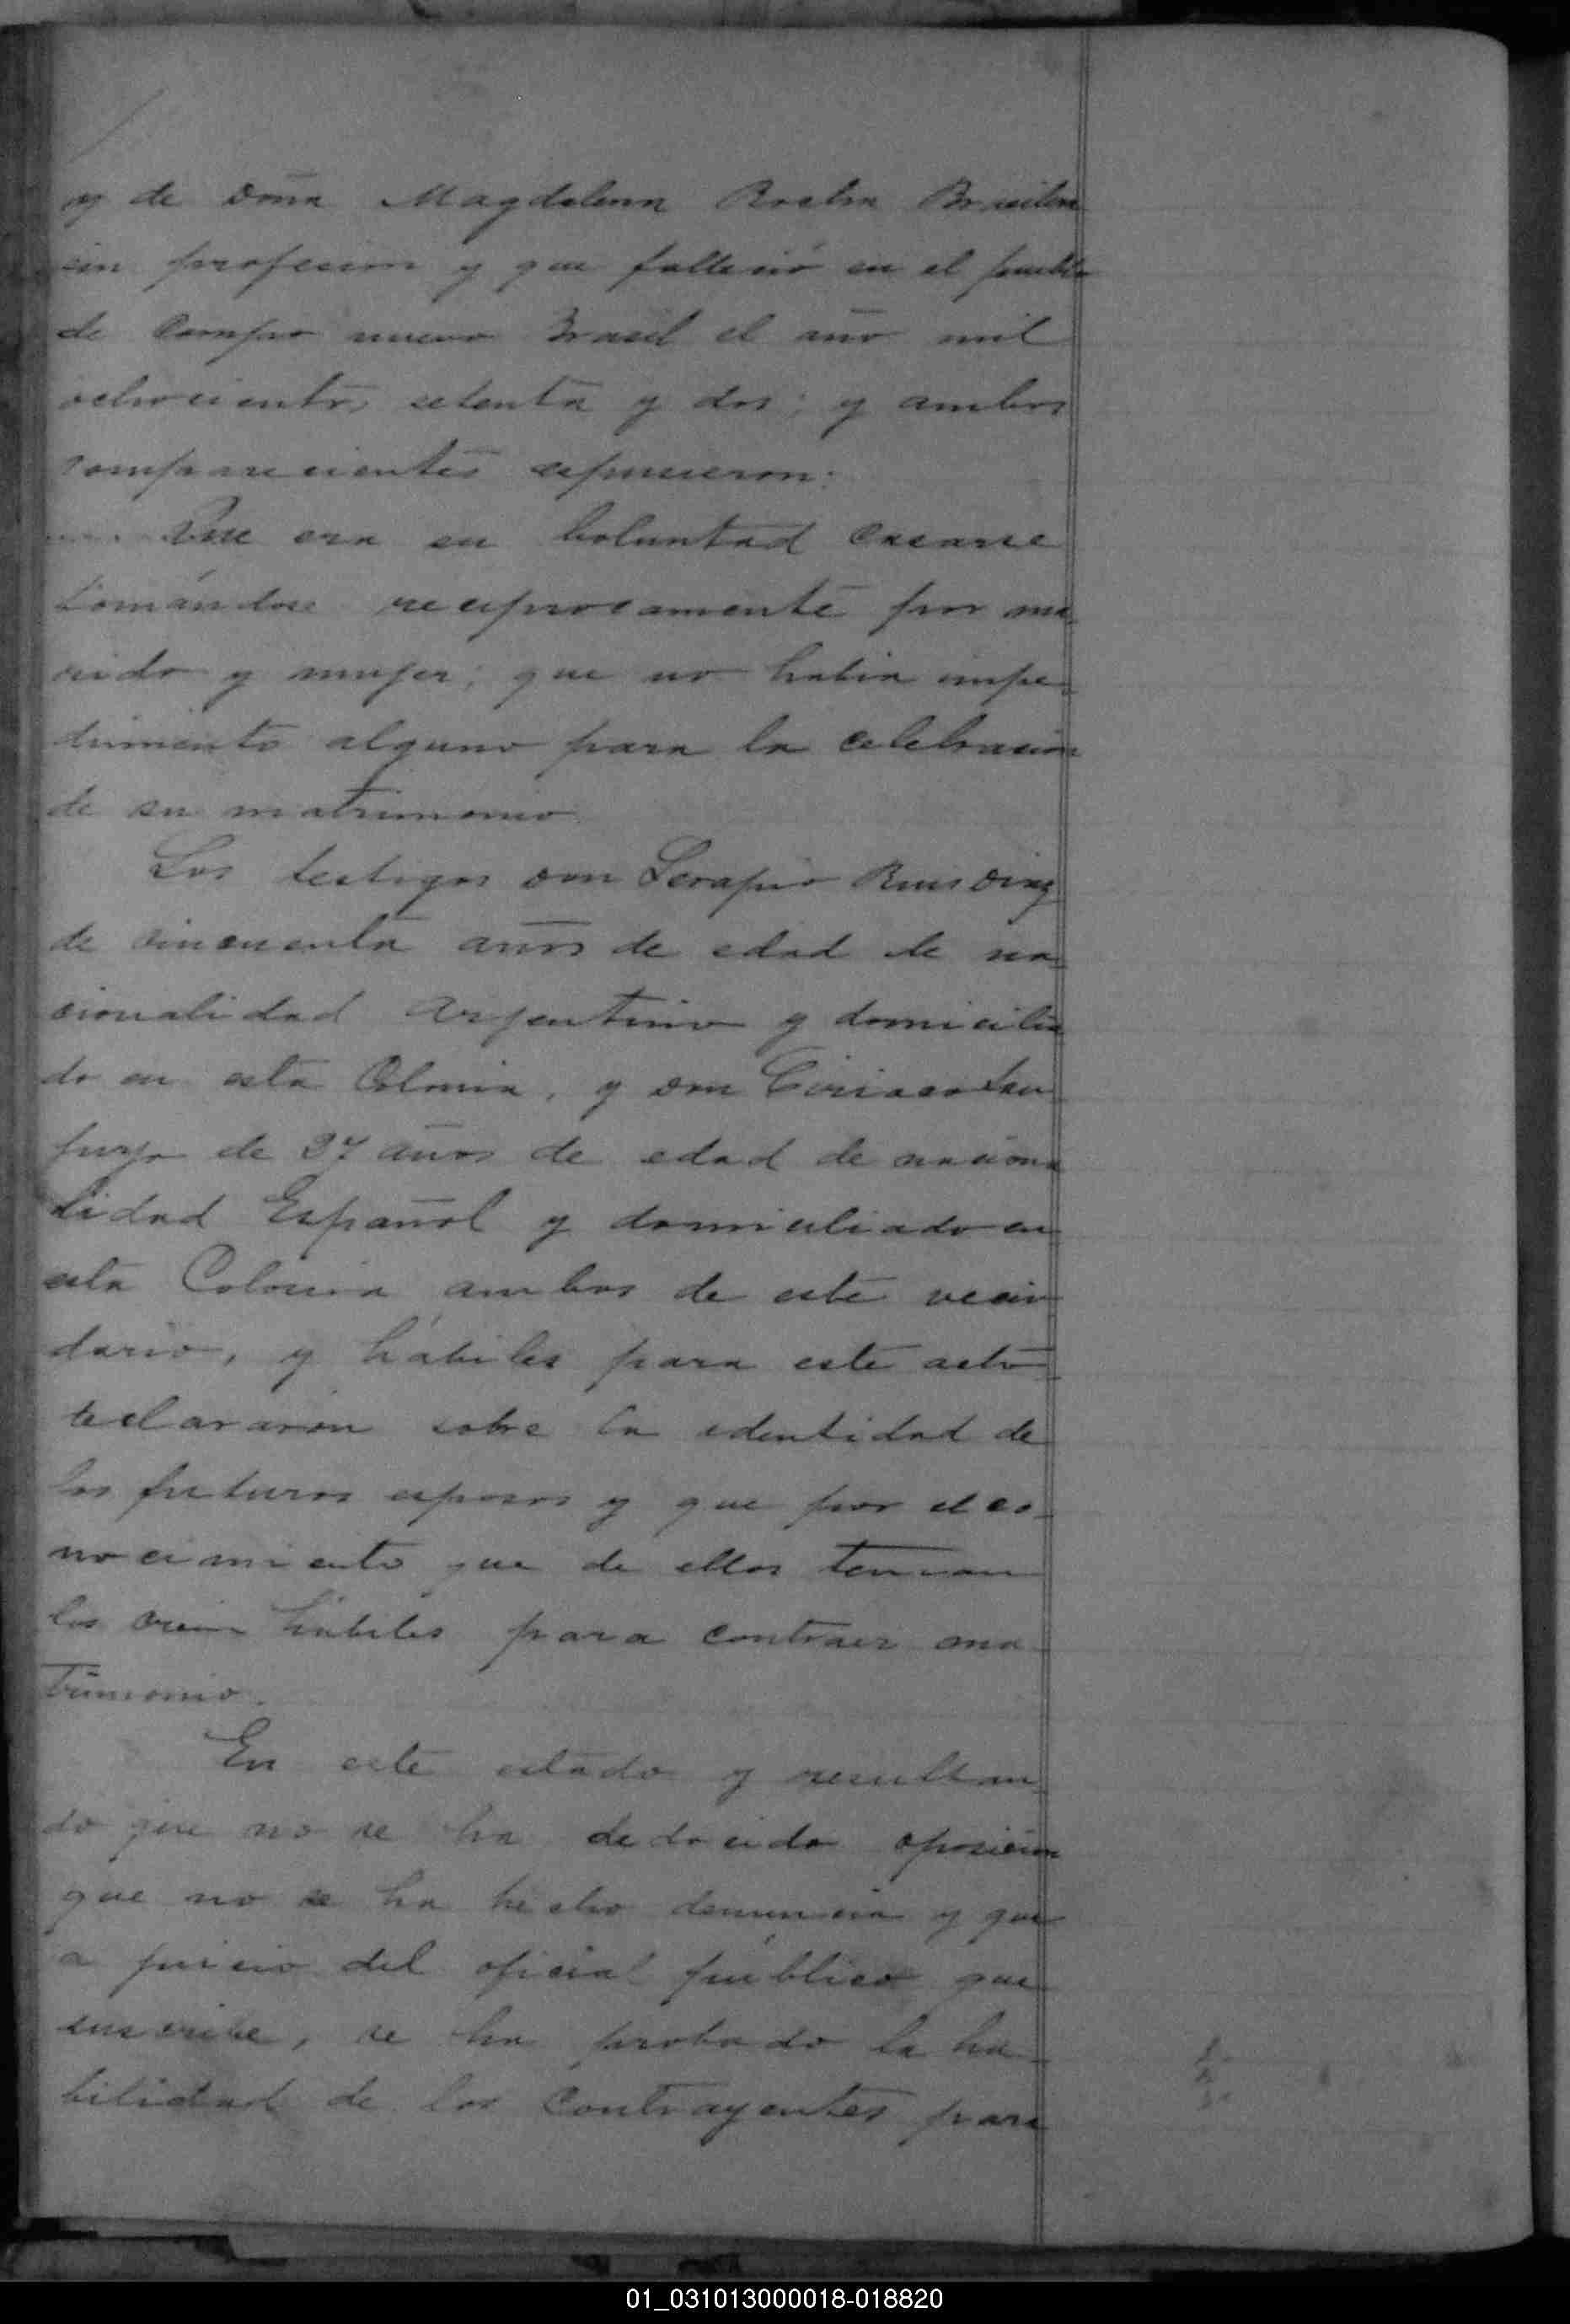 y de Doña Magdalena Rocha Brasilera
sin profesion y que fallesió en el pueblo
de Campo nuevo Brasil el año mil
ochocientos setenta y dos; y ambos
comparecientes espusieron:
Que era su boluntad casarse
tomándose reciprocamente por ma
rido y mujer; que no habia impe-
dimento alguno para la celebracion
de su matrimonio
Los testigos don Serapio Ruis Diaz
de cincuenta años de edad de na
cionalidad Argentino y domicilia
do en esta Colonia, y don Ciriaco
de 37 años de edad de naciona
lidad Español y domiciliado en
esta Colonia ambos de este vecin
dario, y hábiles para este acto
declararon sobre la edentidad de
los futuros esposos y que por el co-
nocimiento que de ellos tenian
los creian hábiles para contraer ma
trimonio.
En este estado y resultan
do que no se ha dedocido oposicion
que no se ha hecho denuncia y que
a juicio del oficial público que
suscribe, se ha probado la ha-
bilidad de los contrayentes para
01_031013000018-018820